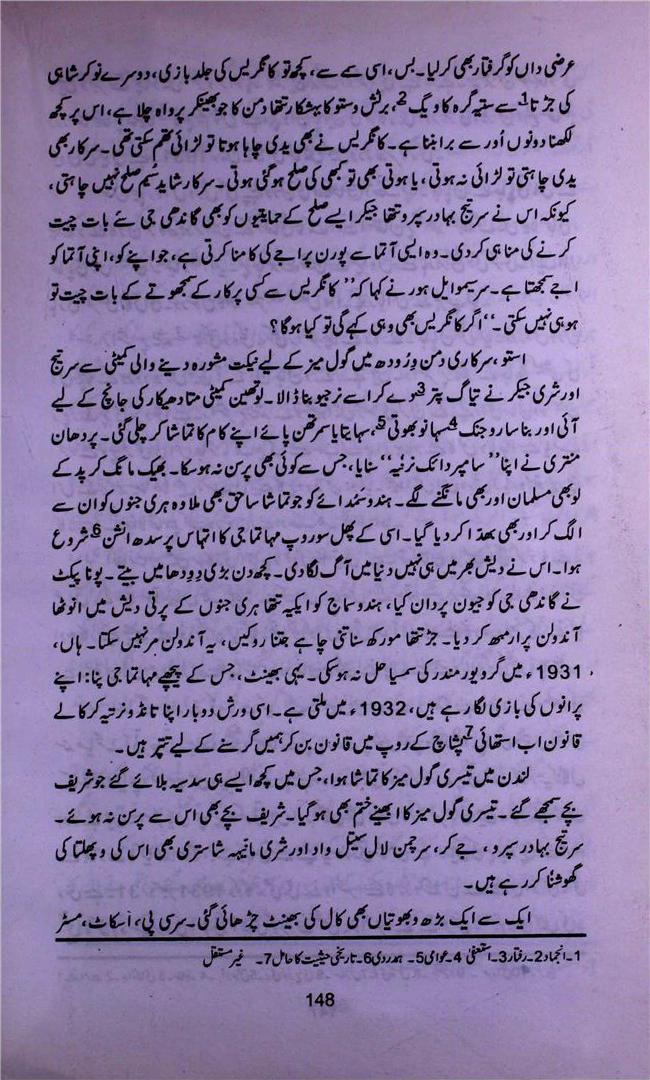 عرضی داں کو گرفتار بھی کر لیا۔ بس، اسی سمے سے، کچھ تو کانگریس کی جلد بازی، دوسرے نوکر شاہی
کی جڑتا1 سے ستیہ گرہ کا ویگ2، برٹش وستو کا بہشکار تتھا دمن کا جو بھینکر پرواہ چلا ہے، اس پر کچھ
لکھنا دونوں اور سے برا بننا ہے۔ کانگریس نے بھی یدی چاہا ہوتا تو لڑائی تھم سکتی تھی۔ سرکار بھی
یدی چاہتی تو لڑائی نہ ہوتی، یا ہوتی بھی تو کبھی کی صلح ہو گئی ہوتی۔ سرکار شاید سیم صلح نہیں چاہتی،
کیونکہ اس نے سر تیج بہادر سپرو تتھا جیکر ایسے صلح کے حمایتیوں کو بھی گاندھی جی سے بات چیت
کرنے کی مناہی کر دی۔ وہ ایسی آتما سے پورن پراجے کی کامنا کرتی ہے، جو اپنے کو، اپنی آتما کو
اجے سمجھتا ہے۔ سر سیموایل ہور نے کہا کہ ’’کانگریس سے کسی پرکار کے سمجھوتے کے بات چیت تو
ہو ہی نہیں سکتی۔‘‘ اگر کانگریس بھی وہی کہے گی تو کیا ہوگا؟
استو، سرکاری دمن ورودھ میں گول میز کے لیے نیکت مشورہ دینے والی کمیٹی سے سر تیج
اور شری جیکر نے تیاگ پتر3 دے کر اسے نرجیو بنا ڈالا۔ لوتھین کمیٹی متادھیکار کی جانچ کے لیے
آئی اور بنا ساروجنک4 سہانوبھوتی5، سہایتا یا سمرتھن پائے اپنے کام کا تماشا کر چلی گئی۔ پردھان
منتری نے اپنا ’’سامپردائک نرنیہ‘‘ سنایا، جس سے کوئی بھی پرسن نہ ہو سکا۔ بھیک مانگ کر پد کے
لوبھی مسلمان اور بھی مانگنے لگے۔ ہندو سمُدائے کو جو تماشا ساحق بھی ملا وہ ہری جنوں کو ان سے
الگ کر اور بھی بھدا کر دیا گیا۔ اسی کے پھل سوروپ مہاتما جی کا اتہاس پرسدھ انشن6 شروع
ہوا۔ اس نے دیش بھر میں ہی نہیں دنیا میں آگ لگا دی۔ کچھ دن بڑی دودھا میں بیتے۔ پونا پیکٹ
نے گاندھی جی کو جیون پردان کیا، ہندو سماج کو ایکیہ تتھا ہری جنوں کے پرتی دیش میں انوٹھا
آندولن پرارمبھ کر دیا۔ جڑ تتھا مورکھ سناتنی چاہے جتنا روکیں، یہ آندولن مر نہیں سکتا۔ ہاں،
1931ء میں گرویور مندر کی سمسیا حل نہ ہو سکی۔ یہی بھینٹ، جس کے پیچھے مہاتما جی پنا: اپنے
پرانوں کی بازی لگا رہے ہیں، 1932ء میں ملتی ہے۔ اسی ورش دوبار اپنا تانڈو نرتیہ کر کالے
قانون اب استھائی7 پشاچ کے روپ میں قانون بن کر ہمیں گرسنے کے لیے تتپر ہیں۔
لندن میں تیسری گول میز کا تماشا ہوا، جس میں کچھ ایسے ہی سدسیہ بلائے گئے جو شریف
بچے سمجھے گئے۔ تیسری گول میز کا ابھینے ختم بھی ہو گیا۔ شریف بچے بھی اس سے پرسن نہ ہوئے۔
سر تیج بہادر سپرو، جے کر، سر چمن لال سیتل واد اور شری مانیہہ شاستری بھی اس کی وپھلتا کی
گھوشنا کر رہے ہیں۔
ایک سے ایک بڑھ وبھوتیاں بھی کال کی بھینٹ چڑھائی گئی۔ سر سی پی، اسکاٹ، مسٹر
1۔ انجماد 2۔ رفتار 3۔ استعفیٰ 4۔ عوامی 5۔ ہمدردی 6۔ تاریخی حیثیت کا حامل 7۔ غیر مستقل
148